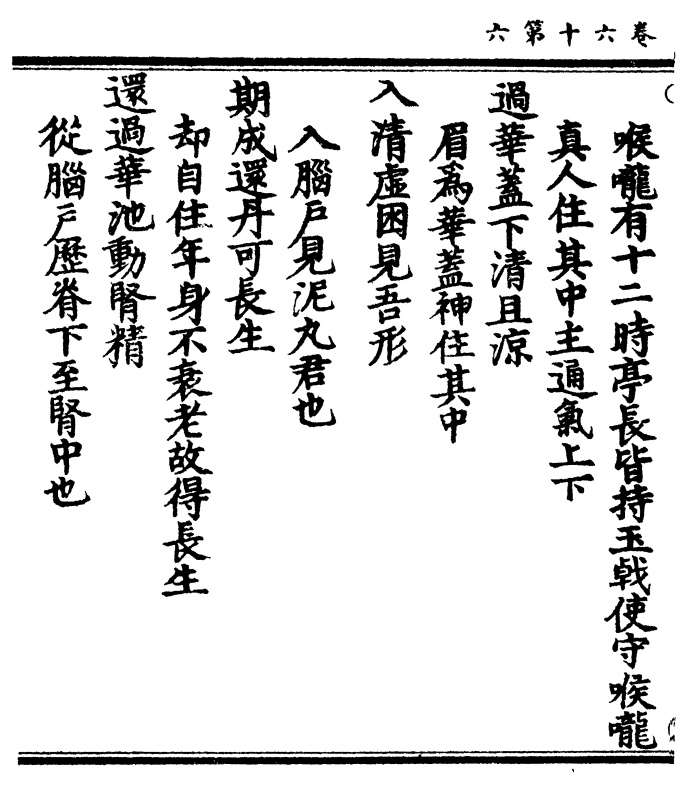 卷六十第六
喉嚨有十二時亭長皆持玉戟使守喉嚨
真人住其中主通氣上下
過華蓋下清且涼
眉為華蓋神住其中
入清虛困見吾形
入腦戶見泥丸君也
期成還丹可長生
却自住年身不衰老故得長生
還過華池動腎精
從腦戶歷脊下至腎中也